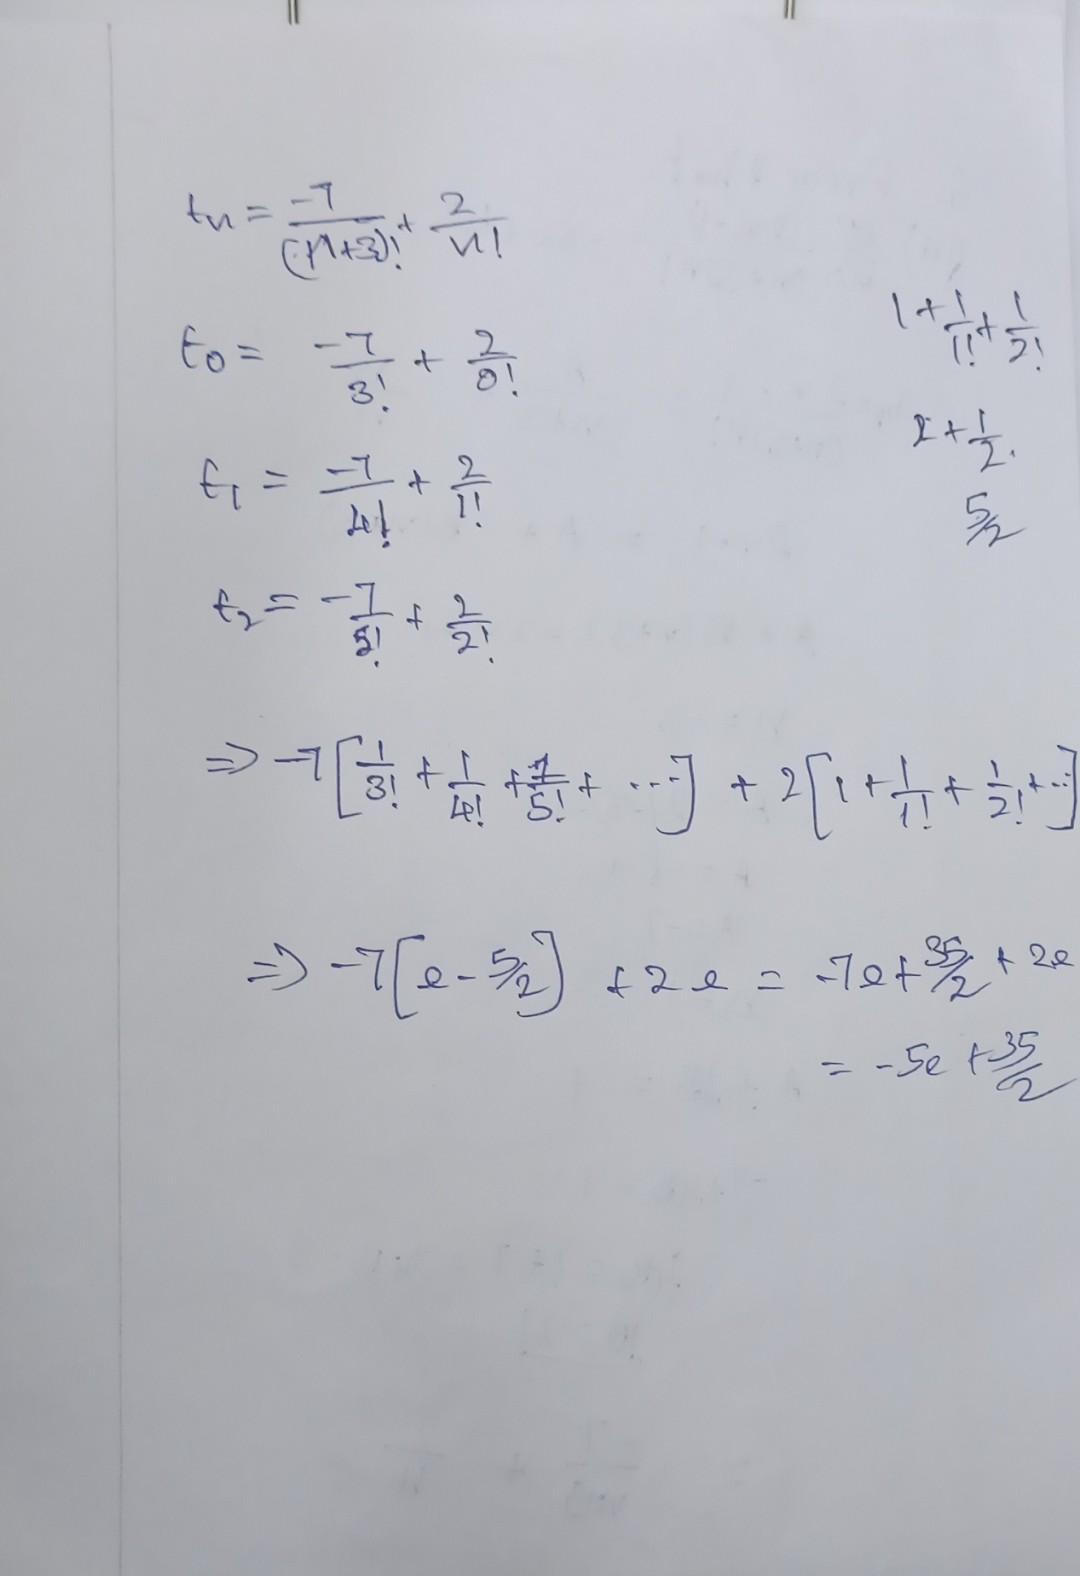 tn = -7/(n+3)! + 2/n!
t0 = -7/3! + 2/0!
t1 = -7/4! + 2/1!
t2 = -7/5! + 2/2!
1 + 1/1! + 1/2!
2 + 1/2.
5/2
⇒ -7[1/3! + 1/4! + 1/5! + ...] + 2[1 + 1/1! + 1/2! + ...]
⇒ -7[e - 5/2] + 2e = -7e + 35/2 + 2e
= -5e + 35/2